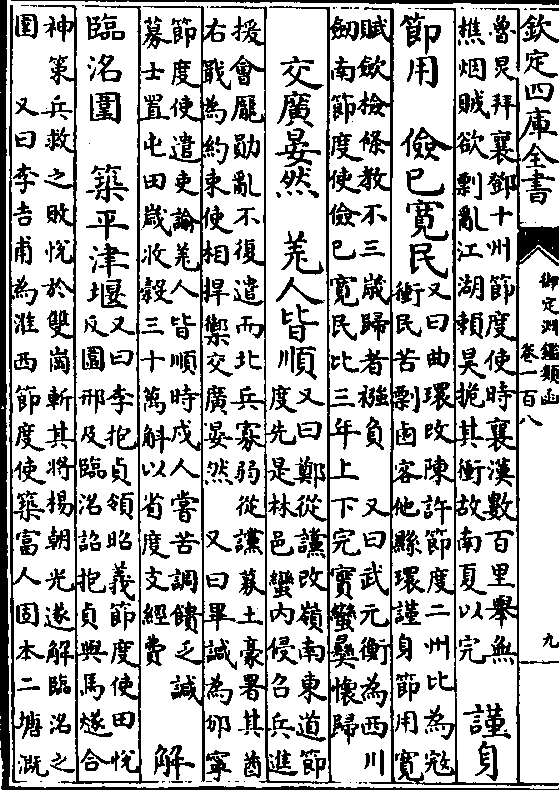 欽定四庫全書
御定淵鑑類函
卷一百八
九
魯炅拜襄鄧十州節度使時襄漢數百里舉無
樵烟賊欲剽亂江湖賴炅扼其衝故南夏以完
謹身
節用
儉已寛民
又曰曲環改陳許節度二州比為冦
衝民苦剽鹵客他縣環謹身節用寛
賦斂檢條教不三歲歸者襁負 又曰武元衡為西川
劒南節度使儉已寛民比三年上下完實蠻夷懷歸
交廣晏然
羌人皆順
又曰鄭從讜改嶺南東道節
度先是林邑蠻内侵召兵進
援會龎勛亂不復遣而北兵寡弱從讜募土豪署其酋
右職為約束使相捍禦交廣晏然 又曰畢諴為邠寧
節度使遣吏諭羌人皆順時戍人嘗苦調饋乏諴
募士置屯田歲收穀三十萬斛以省度支經費
解
臨洺圍
築平津堰
又曰李抱貞領昭義節度使田悅
反圍邢及臨洺詔抱貞與馬燧合
神策兵救之敗悅於雙崗斬其將楊朝光遂解臨洺之
圍 又曰李吉甫為淮西節度使築富人固本二塘溉